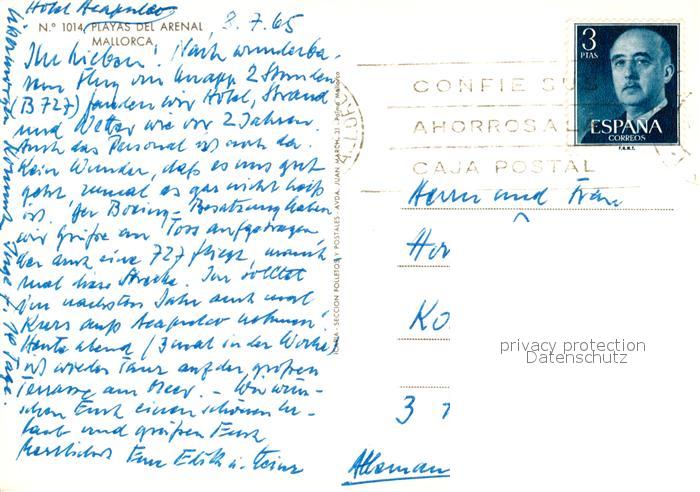 Hotel Acapulco
N.º 1014, PLAYAS DEL ARENAL
MALLORCA
8.7.65
Ihr Lieben! Nach wunderba-
rem Flug von knapp 2 Stunden
(B 727) fanden wir Hotel, Strand
und Wetter wie vor 2 Jahren.
Auch das Personal ist noch da.
Kein Wunder, daß es uns gut
geht zumal es gar nicht heiß
ist. Der Boeing-Besatzung haben
wir Grüße an Joss aufgetragen
der auch eine 727 fliegt, manch-
mal diese Strecke. Ihr solltet
im nächsten Jahr auch mal
Kurs aufs Acapulco nehmen!
Heute abend (3 mal in der Woche)
ist wieder Tanz auf der großen
Terrasse am Meer. – Wir wün-
schen Euch einen schönen Ur-
laub und grüßen Euch
herzlichst Eure Edith u. Heinz
Übermorgen kommt Inge f. 10 Tage.
SECCION FOLLETOS Y POSTALES - AVDA. JUAN MARCH, 21 - Palma Mallorca
3
PTAS
ESPAÑA
CORREOS
F.N.M.T.
CONFIE SUS
AHORROS A L
CAJA POSTAL
Herrn und Frau
Her
Ko
3
Alleman
privacy protection
Datenschutz